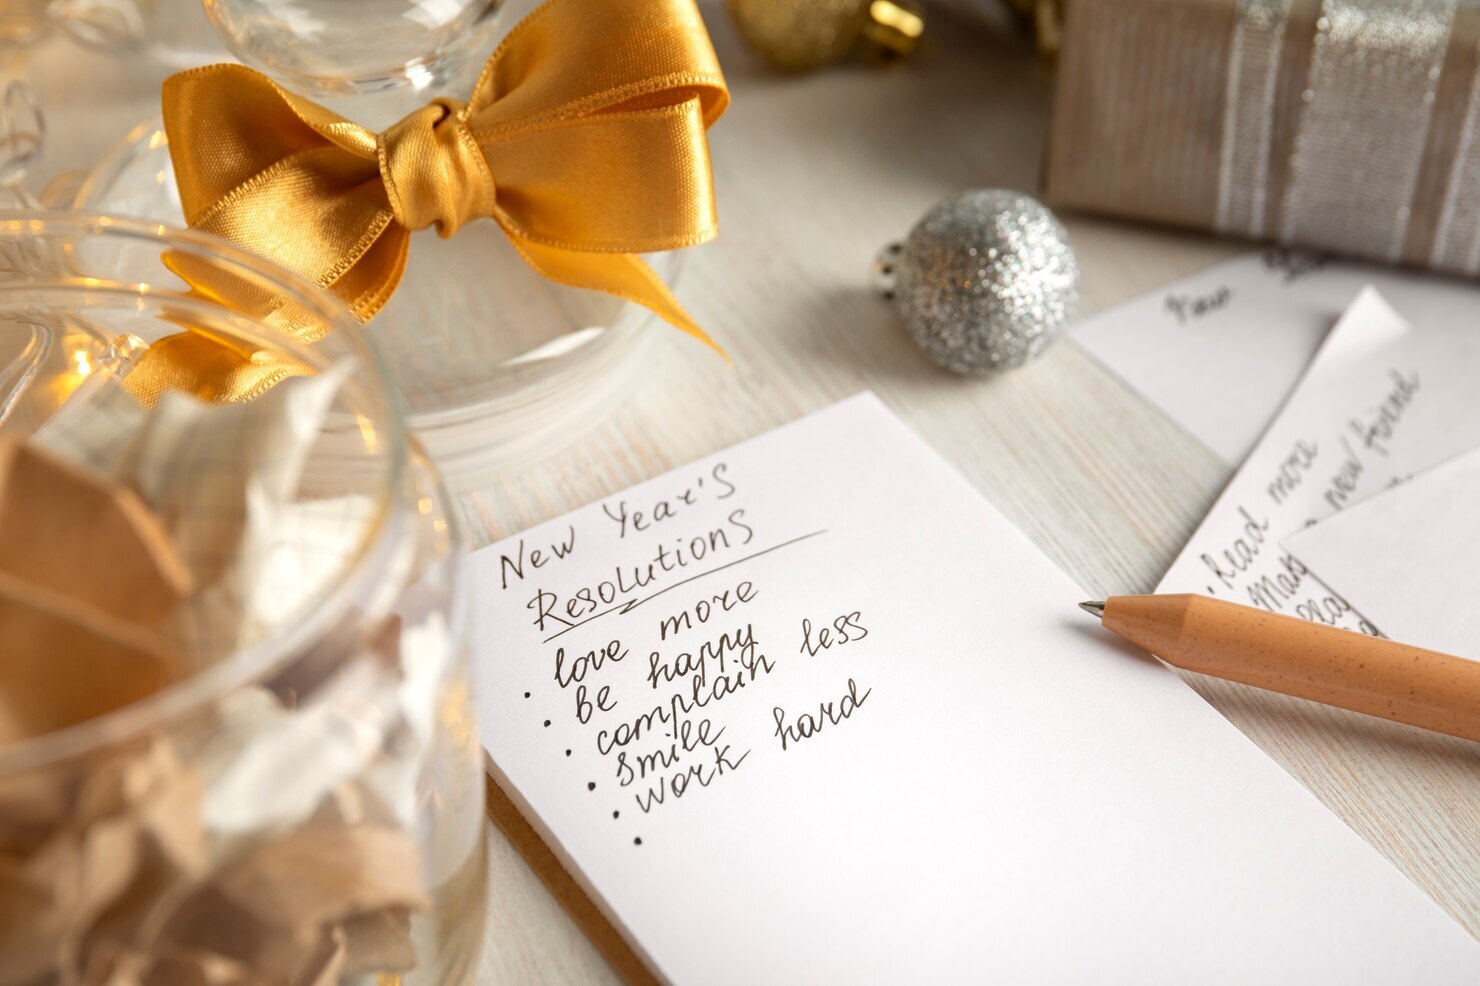 New Year's
Resolutions
· love more
· be happy
· complain less
· smile
· work hard
·
· Read more
new friend